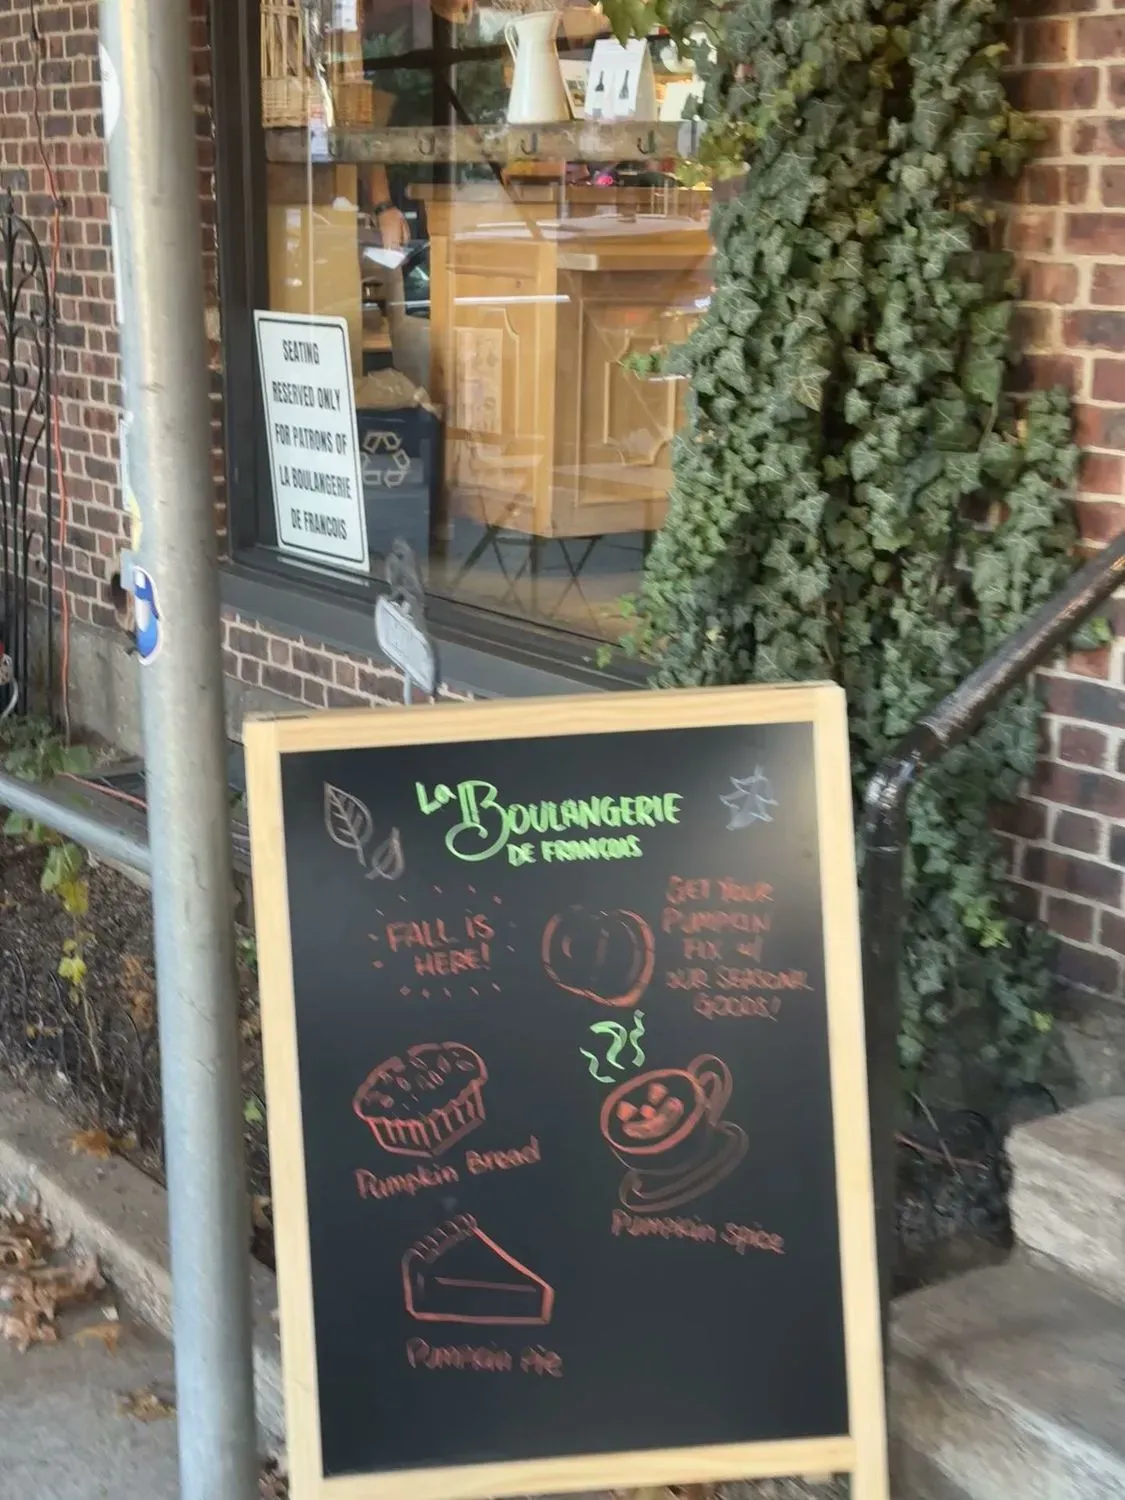 SEATING
RESERVED ONLY
FOR PATRONS OF
LA BOULANGERIE
DE FRANCOIS
La BOULANGERIE
DE FRANCOIS
FALL IS
HERE!
GET YOUR
PUMPKIN
FIX W/
OUR SEASONAL
GOODS!
Pumpkin Bread
Pumpkin Spice
Pumpkin Pie